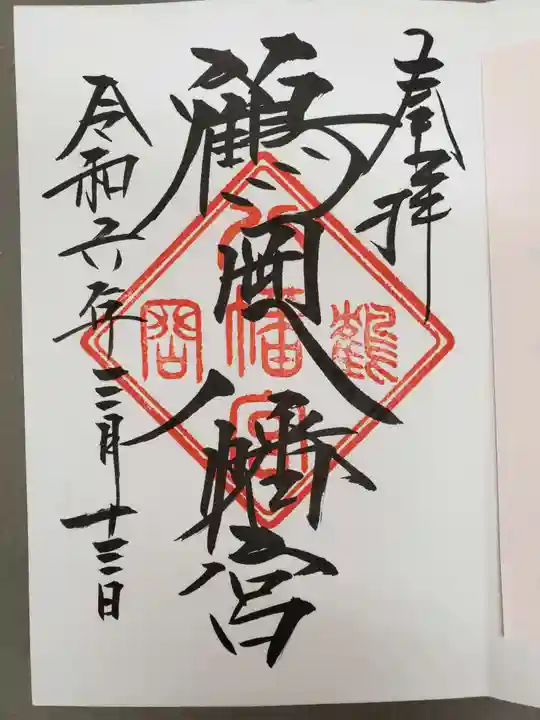 奉拝
鶴岡八幡宮
令和六年三月十三日
鶴
八幡宮
岡